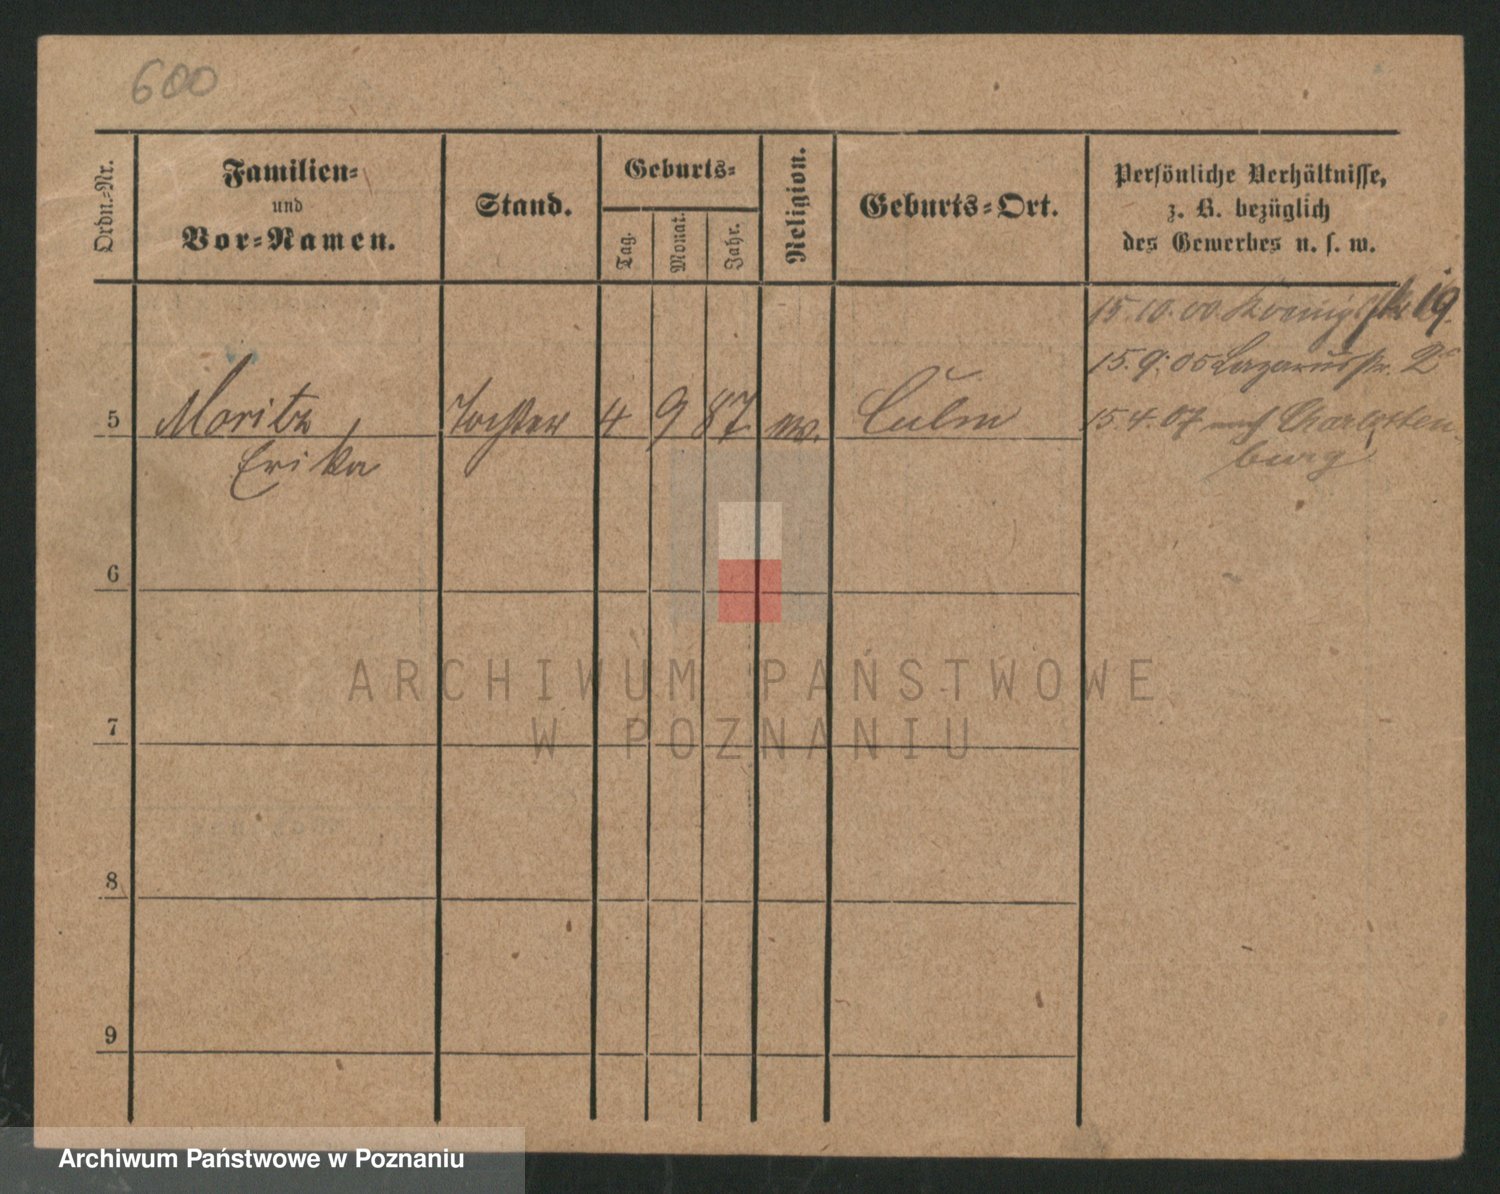 600
Ordn.-Nr.
Familien-
und
Vor-Namen.
Stand.
Geburts-
Tag.
Monat.
Jahr.
Religion.
Geburts-Ort.
Persönliche Verhältnisse,
z. B. bezüglich
des Gewerbes u. s. w.
15.10.00 Königstr. 19.
15.9.05 Lazarusstr. 2
5 Moritz, Tochter 4 9 87. Culm 15.4.07 nach Charlotten-
Erika burg
6
7
8
9
ARCHIWUM PAŃSTWOWE
W POZNANIU
Archiwum Państwowe w Poznaniu